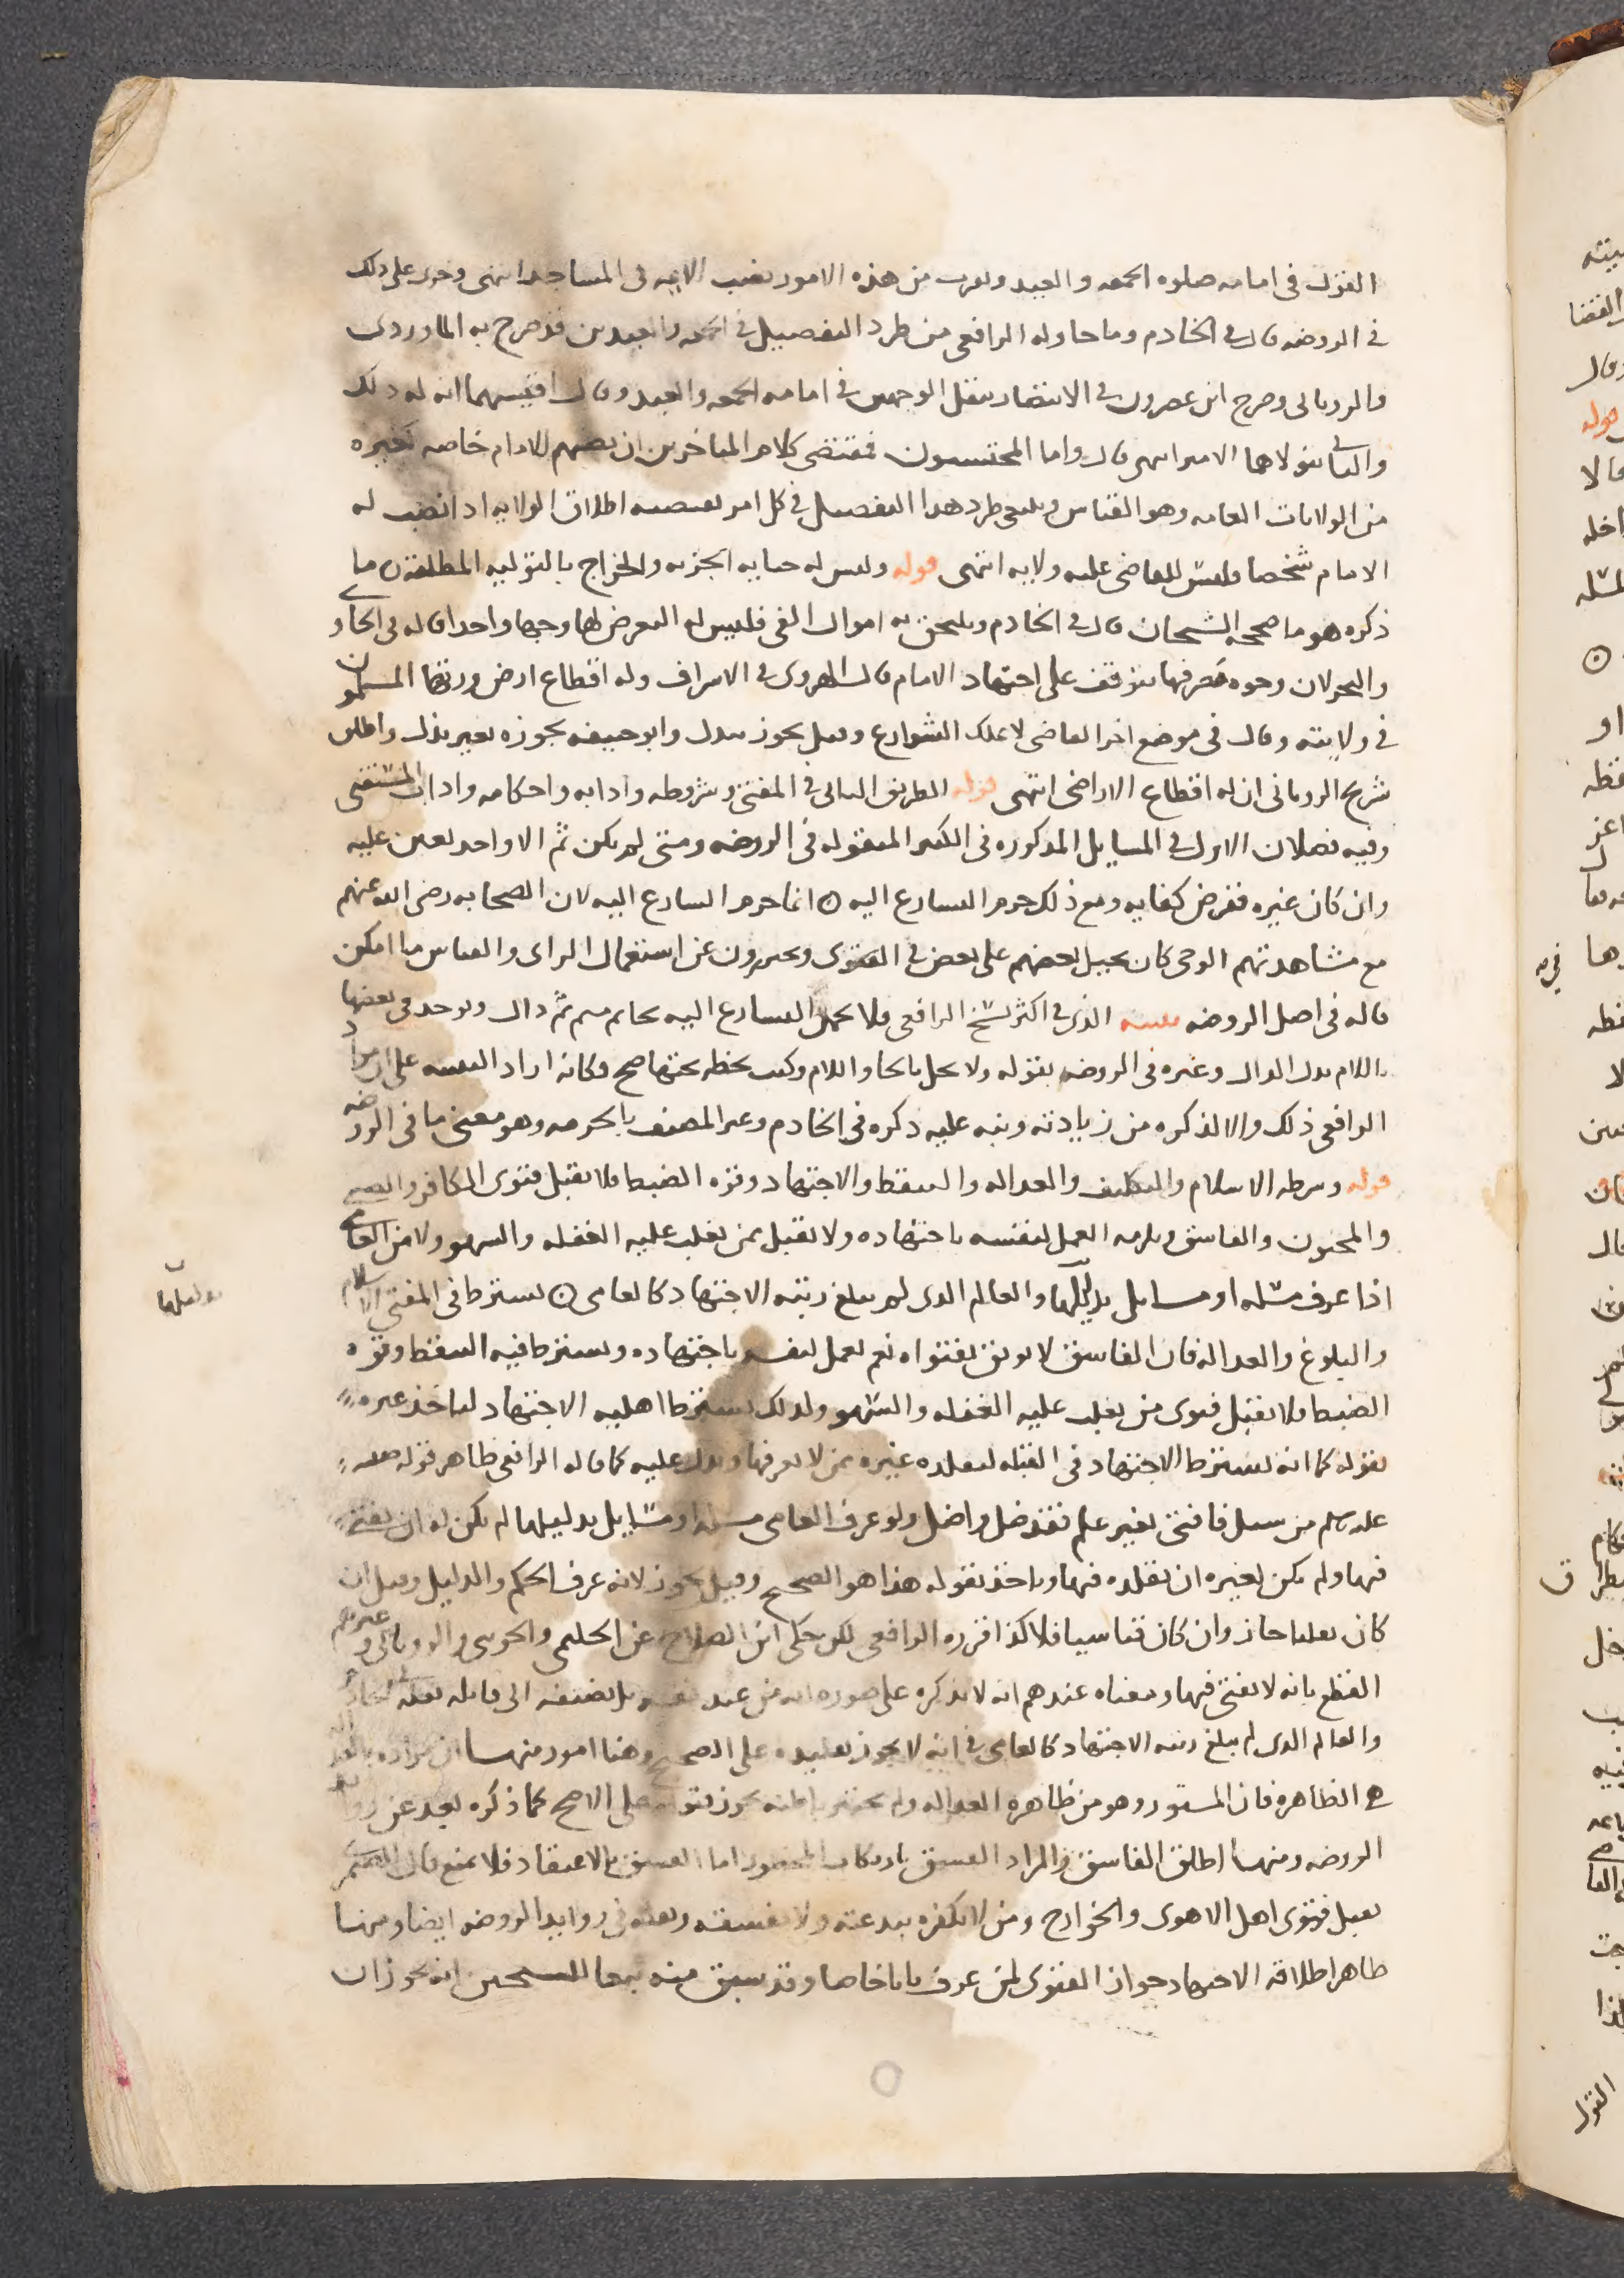 القول في امامه صلوه الجمعه والعيد ويقرب من هذه الامور نصب الايمه في المساجد انتهى وجرى على ذلك
في الروضه قال في الخادم وما حاوله الرافعي من طرد التفصيل في الجمعه والعيدين قد صرح به الماوردي
والروياني وصرح ابن عصرون في الانتصار بنقل الوجهين في امامه الجمعه والعيد وقال اقيسهما انه له ذلك
والثاني يتولاها الامير انتهى قال واما المحتسبون فمقتضى كلام المتاخرين ان نصبهم للامام خاصه كغيره
من الولايات العامه وهو القياس وينبغي طرد هذا التفصيل في كل امر يقتضيه اطلاق الولايه اذا نصب له
الامام شخصا فليس للقاضي عليه ولايه انتهى قوله وليس له جبايه الجزيه والخراج بالتوليه المطلقه ن ما
ذكره هو ما صححه الشيخان قال في الخادم ويلحق به اموال الفي فليس له التعرض لها وجها واحدا قاله في الحاوي
والبحر لان وجوه مصرفها يتوقف على اجتهاد الامام قال الهروي في الاشراف وله اقطاع ارض ورثها المسلمون
في ولايته وقال في موضع اخر القاضي لا يملك الشوارع وقيل يجوز ببدل وابو حنيفه يجوزه بغير بذل واطلق
شريح الروياني ان له اقطاع الاراضي انتهى قوله الطريق الثاني في المفتي وشروطه وادابه واحكامه واداب المستفتي
وفيه فصلان الاول في المسايل المذكوره في الكبير المنقوله في الروضه ومتى لم يكن ثم الا واحد تعين عليه
وان كان غيره ففرض كفايه ومع ذلك حرم التسارع اليه ن انما حرم التسارع اليه لان الصحابه رضي الله عنهم
مع مشاهدتهم الوحي كان يحيل بعضهم على بعض في الفتوى ويحترزون عن استعمال الراي والقياس ما امكن
قاله في اصل الروضه تنبيه الذي في اكثر نسخ الرافعي فلا يحمد التسارع اليه بحا ثم ميم ثم دال ويوجد في بعضها
باللام بدل الدال وعبره في الروضه بقوله ولا يحل بالحا واللام وكتب بخطه تحتها صح وكانه اراد التنبيه على ان مراد
الرافعي ذلك والا لذكره من زيادته ونبه عليه ذكره في الخادم وعبر المصنف بالحرمه وهو معنى ما في الروضه
قوله وشرطه الاسلام والتكليف والعداله والتيقظ والاجتهاد وقوه الضبط فلا تقبل فتوى الكافر والصبي
والمجنون والفاسق ويلزمه العمل لنفسه باجتهاده ولا تقبل ممن تغلب عليه الغفله والسهو ولا من العامي
اذا عرف مسله او مسايل بدليلها والعالم الذي لم يبلغ رتبه الاجتهاد كالعامي ن يشترط في المفتي الاسلام
والبلوغ والعداله فان الفاسق لا يوثق بفتواه نعم يعمل لنفسه باجتهاده ويشترط فيه التيقظ وقوه
الضبط فلا تقبل فتوى من تغلب عليه الغفله والسهو ولذلك يشترط اهليه الاجتهاد لياخذ غيره
بقوله كما انه يشترط الاجتهاد في القبله ليقلده غيره ممن لا يعرفها ويدل عليه كما قاله الرافعي ظاهر قوله صلى الله
عليه وسلم من سيل فافتى بغير علم فقد ضل واضل ولو عرف العامي مسله او مسايل بدليلها لم يكن له ان يفتي
فيها ولم يكن لغيره ان يقلده فيها وياخذ بقوله هذا هو الصحيح وقيل يجوز لانه عرف الحكم والدليل وقيل ان
كان نقليا جاز وان كان قياسيا فلا كذا قرره الرافعي لكن حكى ابن الصلاح عن الحليمي والجويني والروياني وغيرهم
القطع بانه لا يفتي فيها ومعناه عندهم انه لا يذكره على صوره انه من عند نفسه بل يضيفه الى قايله
والعالم الذي لم يبلغ رتبه الاجتهاد كالعامي في انه لا يجوز تقليده على الصحيح وهنا امور منها ان مراده
هي الظاهره فان المستور وهو من ظاهره العداله ولم تختبر باطنه تجوز فتواه على الاصح كما ذكره بعد عن
الروضه ومنها اطلق الفاسق والمراد الفسق بارتكاب المحظور اما الفسق بالاعتقاد فلا يمنع قال الصيمري
تقبل فتوى اهل الاهوى والخوارج ومن لا نكفره ببدعته ولا نفسقه ونقله في زوايد الروضه ايضا ومنها
ظاهر اطلاقه الاجتهاد جواز الفتوى لمن عرف بابا خاصا وقد سبق منه تبعا للشيخين انه يجوز ان